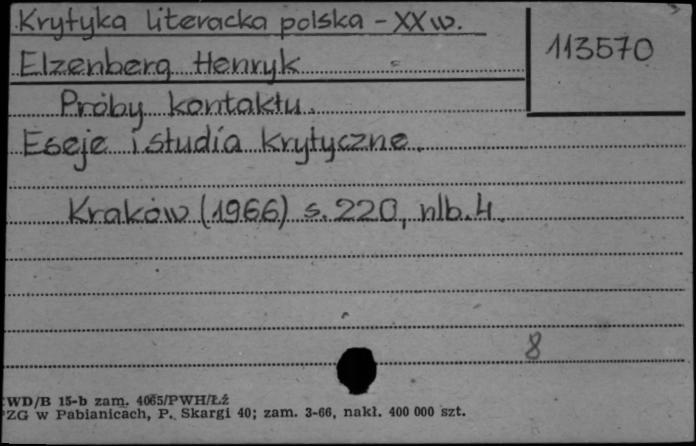 Krytyka literacka polska - XX w.
113570
Elzenberg Henryk
Próby kontaktu.
Eseje i studia krytyczne.
Kraków (1966) s. 220, nlb. 4.
8
WD/B 15-b zam. 4065/PWH/Łź
PZG w Pabianicach, P. Skargi 40; zam. 3-66, nakł. 400 000 szt.